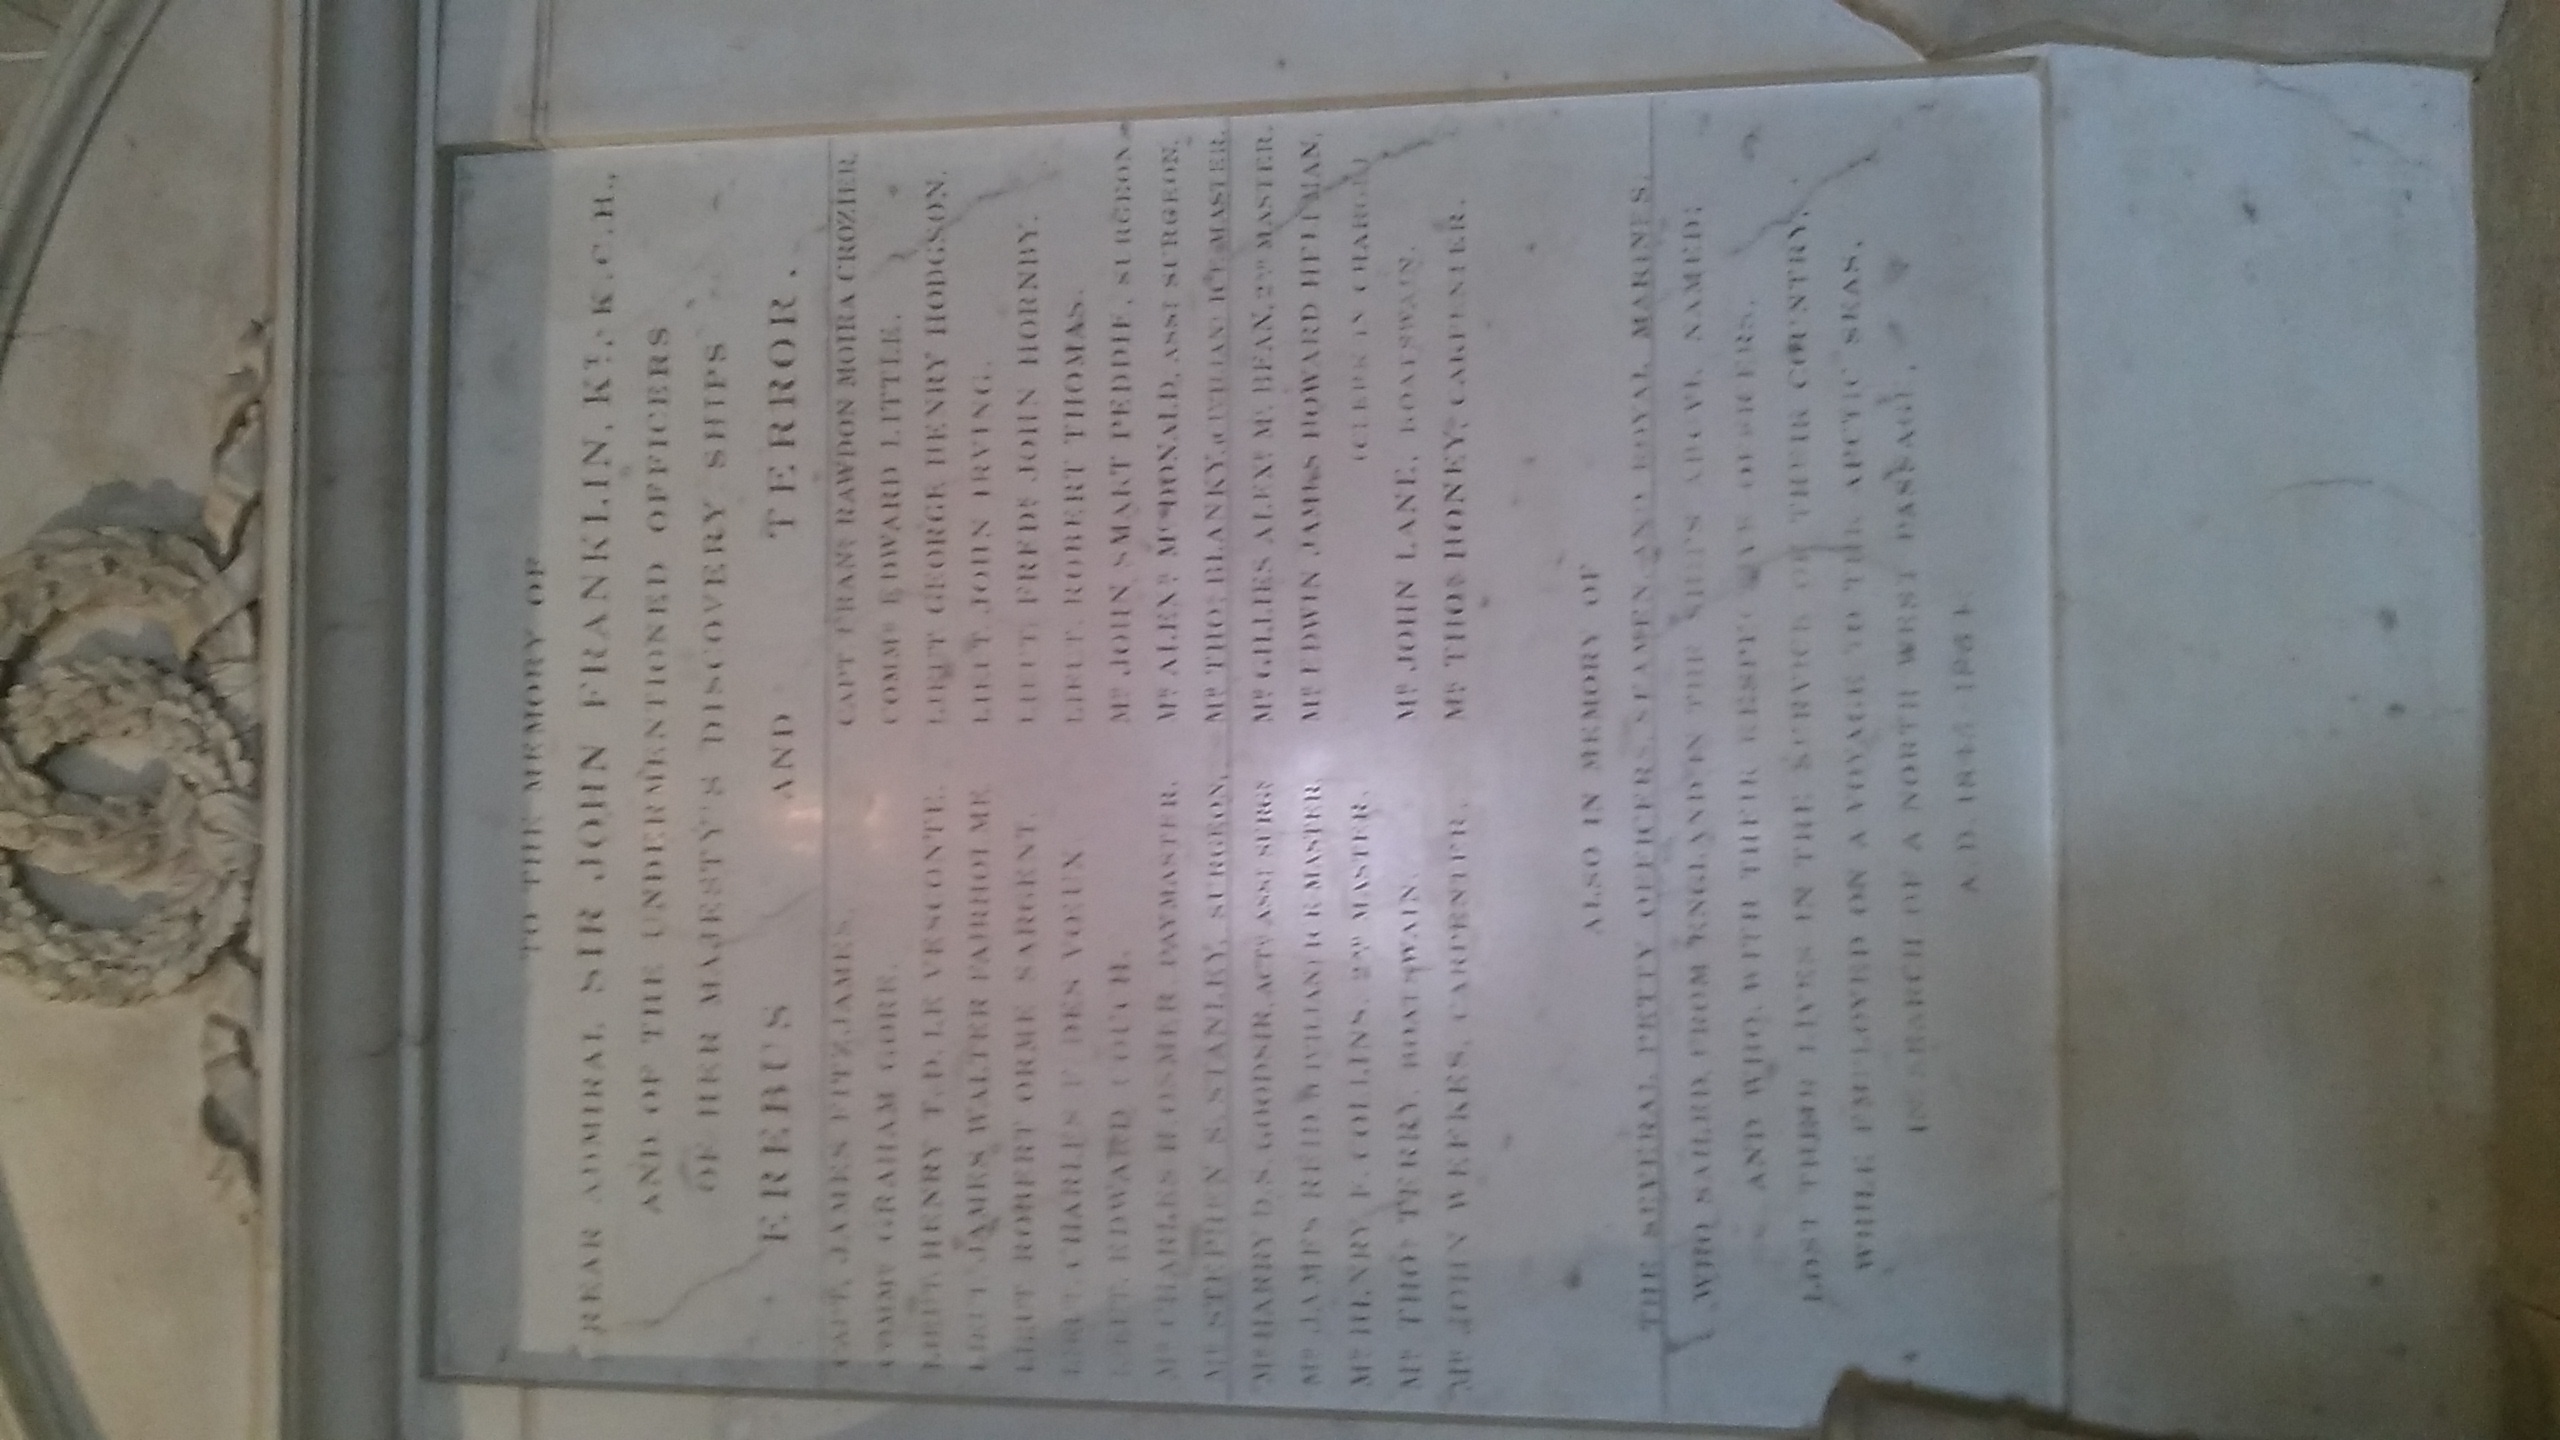 TO THE MEMORY OF
REAR ADMIRAL SIR JOHN FRANKLIN, KT., K.C.H.,
AND OF THE UNDERMENTIONED OFFICERS
OF HER MAJESTY'S DISCOVERY SHIPS
EREBUS AND TERROR.
CAPT. JAMES FITZJAMES. CAPT FRANS RAWDON MOIRA CROZIER.
COMMR GRAHAM GORE. COMMR EDWARD LITTLE.
LIEUT. HENRY T.D. LE VESCONTE. LIEUT GEORGE HENRY HODGSON.
LIEUT. JAMES WALTER FAIRHOLME LIEUT. JOHN IRVING.
LIEUT ROBERT ORME SARGENT. LIEUT. FREDK JOHN HORNBY.
LIEUT. CHARLES F. DES VOEUX LIEUT. ROBERT THOMAS.
LIEUT. EDWARD COUCH. MR JOHN SMART PEDDIE, SURGEON.
MR CHARLES H. OSMER, PAYMASTER. MR ALEXR MCDONALD, ASST SURGEON.
MR STEPHEN S. STANLEY, SURGEON, MR THOS BLANKY, (CIVILIAN) ICE MASTER.
MR HARRY D.S. GOODSIR, ACTG ASST SURGN MR GILLIES ALEXR MC BEAN, 2ND MASTER.
MR JAMES REID (CIVILIAN) ICE MASTER. MR EDWIN JAMES HOWARD HELPMAN,
MR HENRY F. COLLINS, 2ND MASTER. (CLERK IN CHARGE)
MR THOS TERRY, BOATSWAIN. MR JOHN LANE, BOATSWAIN.
MR JOHN WEEKES, CARPENTER. MR THOS HONEY, CARPENTER.
ALSO IN MEMORY OF
THE SEVERAL PETTY OFFICERS, SEAMEN, AND ROYAL MARINES,
WHO SAILED FROM ENGLAND IN THE SHIPS ABOVE NAMED;
AND WHO, WITH THEIR RESPVE OFFICERS,
LOST THEIR LIVES IN THE SERVICE OF THEIR COUNTRY,
WHILE EMPLOYED ON A VOYAGE TO THE ARCTIC SEAS,
IN SEARCH OF A NORTH WEST PASSAGE,
A.D. 1845